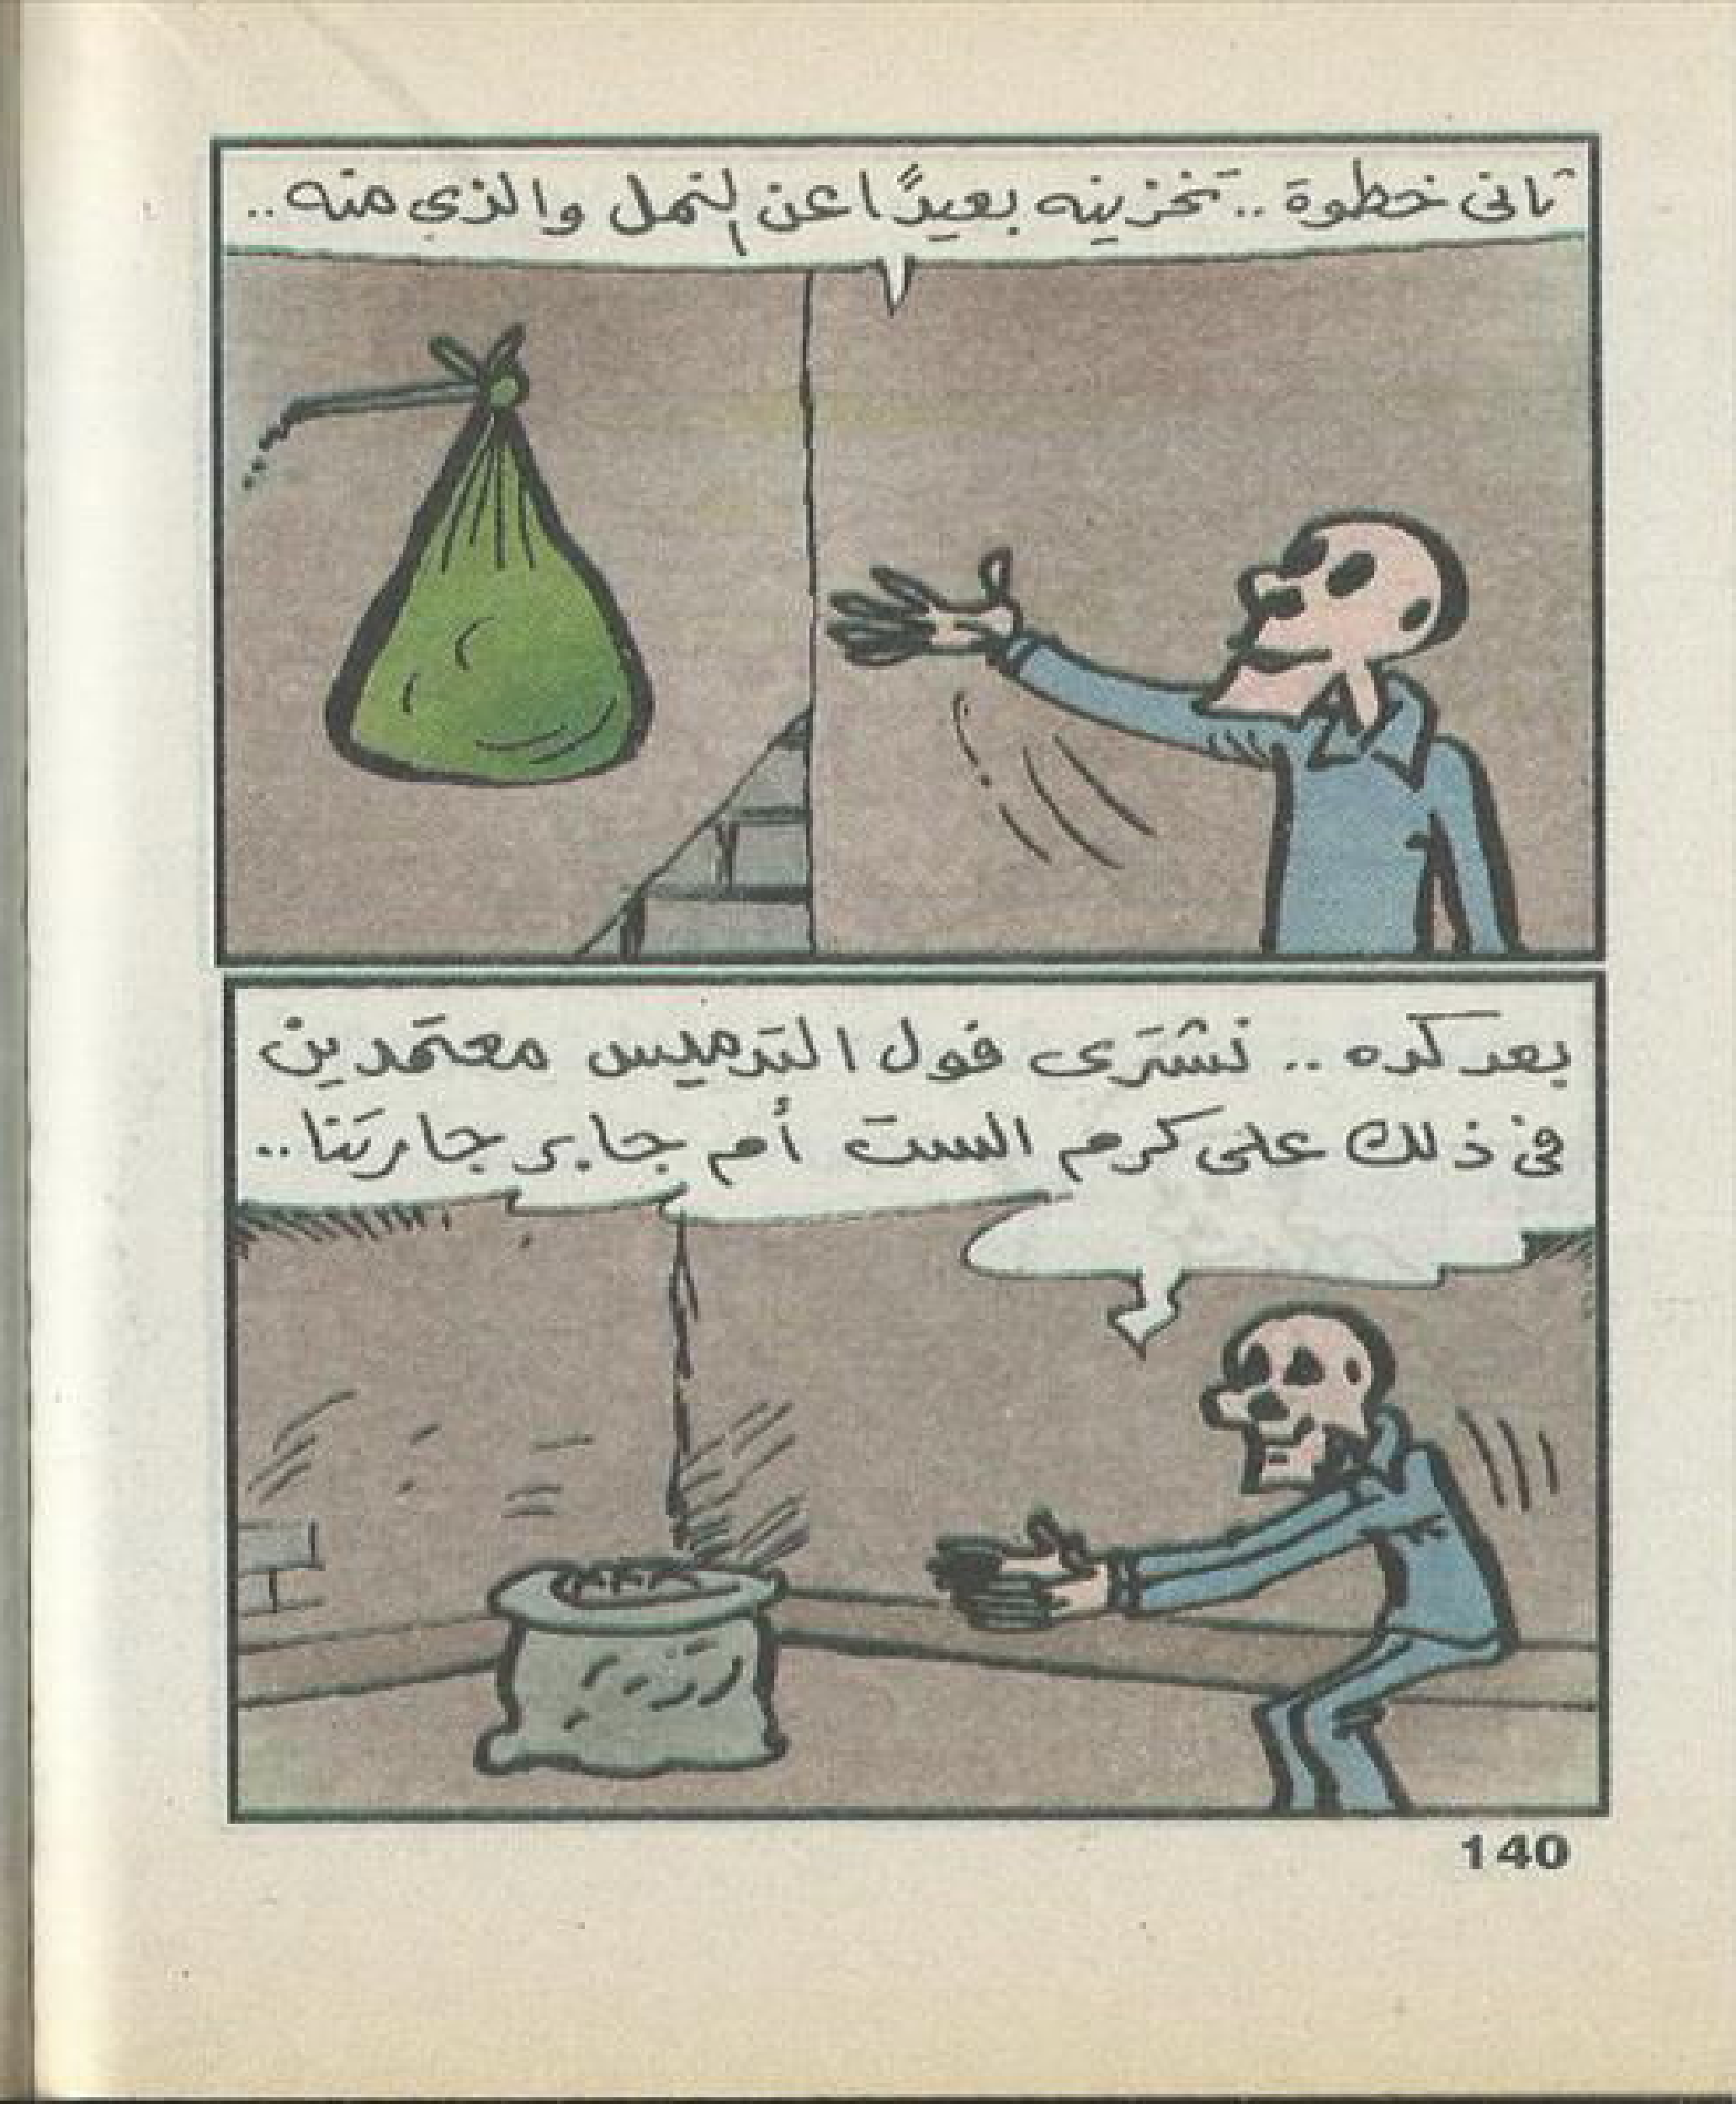 تانى خطوة .. تخزينه بعيدًا عن النمل والذي منه ..
بعد كده .. نشترى فول التدميس معتمدين
فى ذلك على كرم الست أم جابر جارتنا ..
140